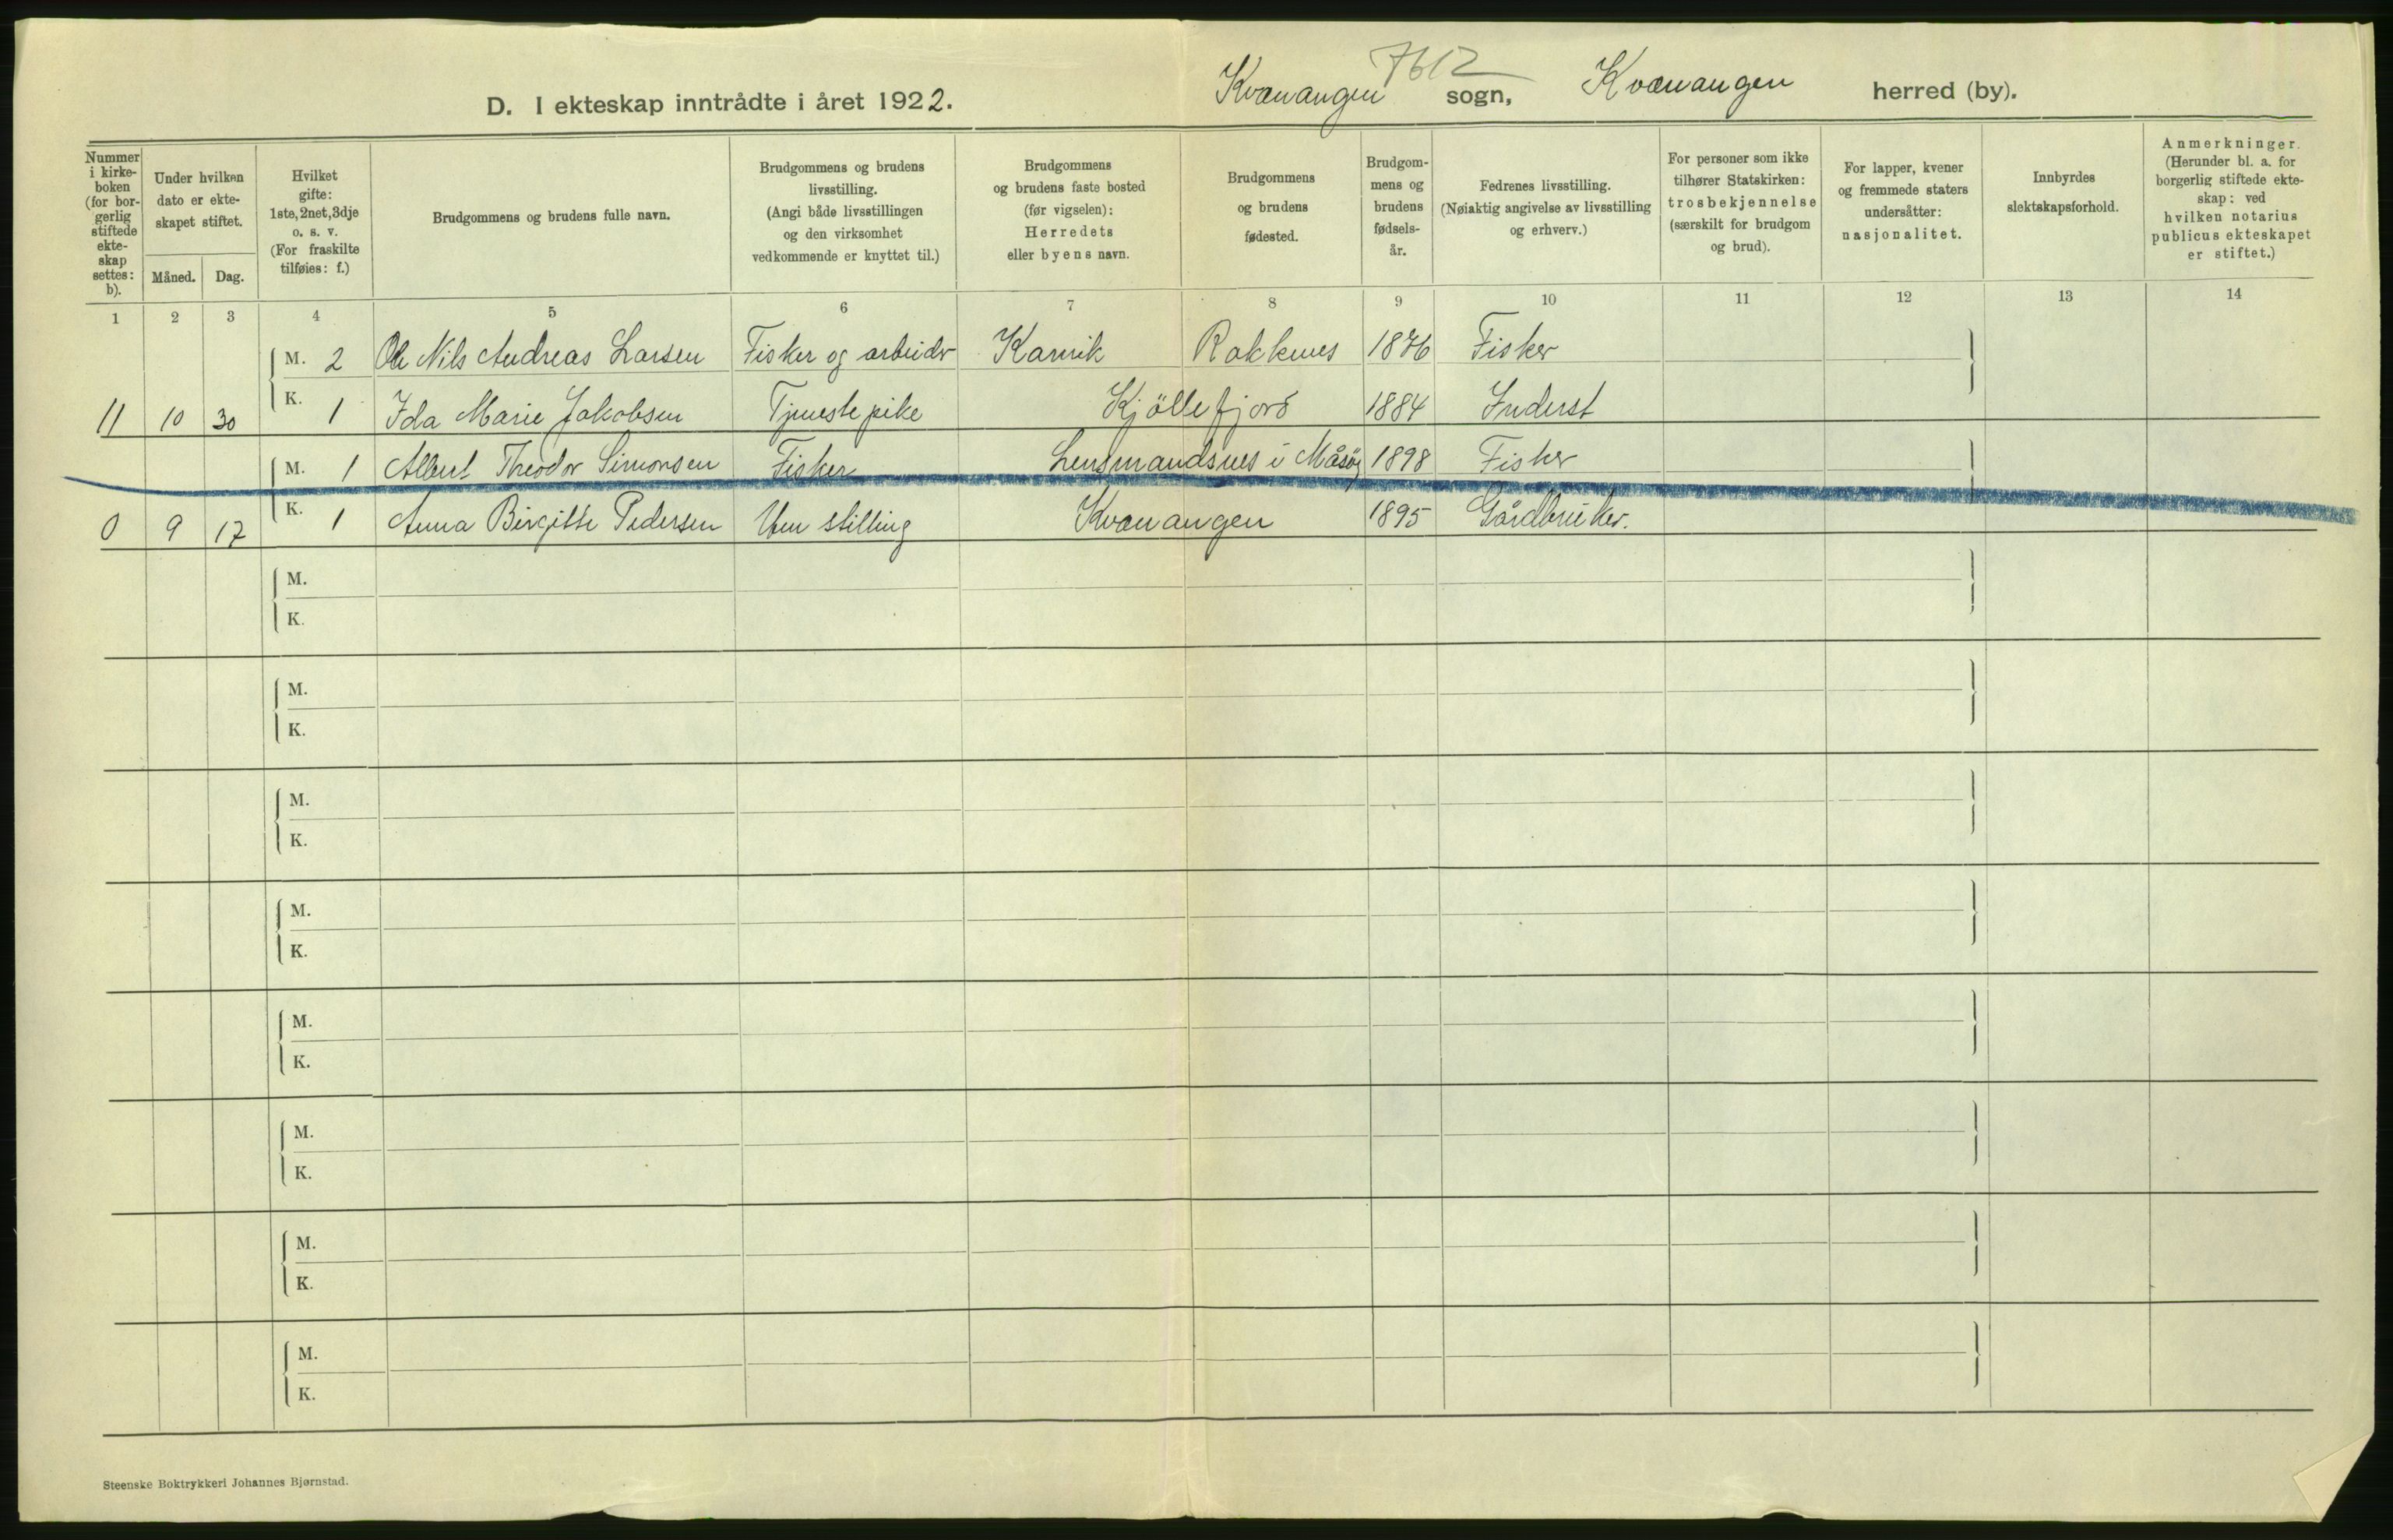 7612
D. I ekteskap inntrådte i året 1922. Kvænangen sogn, Kvænangen herred (by).
Nummer i kirkeboken (for borgerlig stiftede ekteskap settes: b).
Under hvilken dato er ekteskapet stiftet.
Måned. Dag.
Hvilket gifte: 1ste, 2net, 3dje o. s. v. (For fraskilte tilføies: f.)
Brudgommens og brudens fulle navn.
Brudgommens og brudens livsstilling. (Angi både livsstillingen og den virksomhet vedkommende er knyttet til.)
Brudgommens og brudens faste bosted (før vigselen): Herredets eller byens navn.
Brudgommens og brudens fødested.
Brudgommens og brudens fødselsår.
Fedrenes livsstilling. (Nøiaktig angivelse av livsstilling og erhverv.)
For personer som ikke tilhører Statskirken: trosbekjennelse (særskilt for brudgom og brud).
For lapper, kvener og fremmede staters undersåtter: nasjonalitet.
Innbyrdes slektskapsforhold.
Anmerkninger. (Herunder bl. a. for borgerlig stiftede ekteskap: ved hvilken notarius publicus ekteskapet er stiftet.)
1 2 3 4 5 6 7 8 9 10 11 12 13 14
M. 2 Ole Nils Andreas Larsen Fisker og arbeider Karvik Rakkenes 1876 Fisker
11 10 30 K. 1 Ida Marie Jakobsen Tjenestepike Kjöllefjord 1884 Inderst
M. 1 Albert Theodor Simonsen Fisker Lensmandsnes i Måsöy 1898 Fisker
0 9 17 K. 1 Anna Birgitte Pedersen Uten stilling Kvænangen 1895 Gårdbruker.
M.
K.
M.
K.
M.
K.
M.
K.
M.
K.
M.
K.
M.
K.
M.
K.
Steenske Boktrykkeri Johannes Bjørnstad.